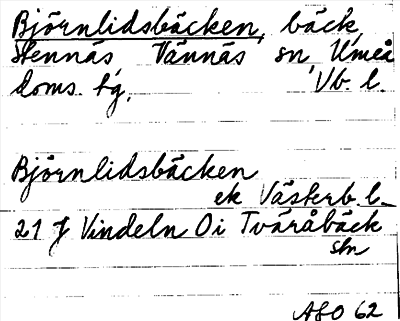 Björnlidsbäcken, bäck,
Stennäs Vännäs sn Umeå
doms. tg. Vb. l.
Björnlidsbäcken
ek Västerb. l.
21 J Vindeln Oi Tväråbäck
stn
ASO 62